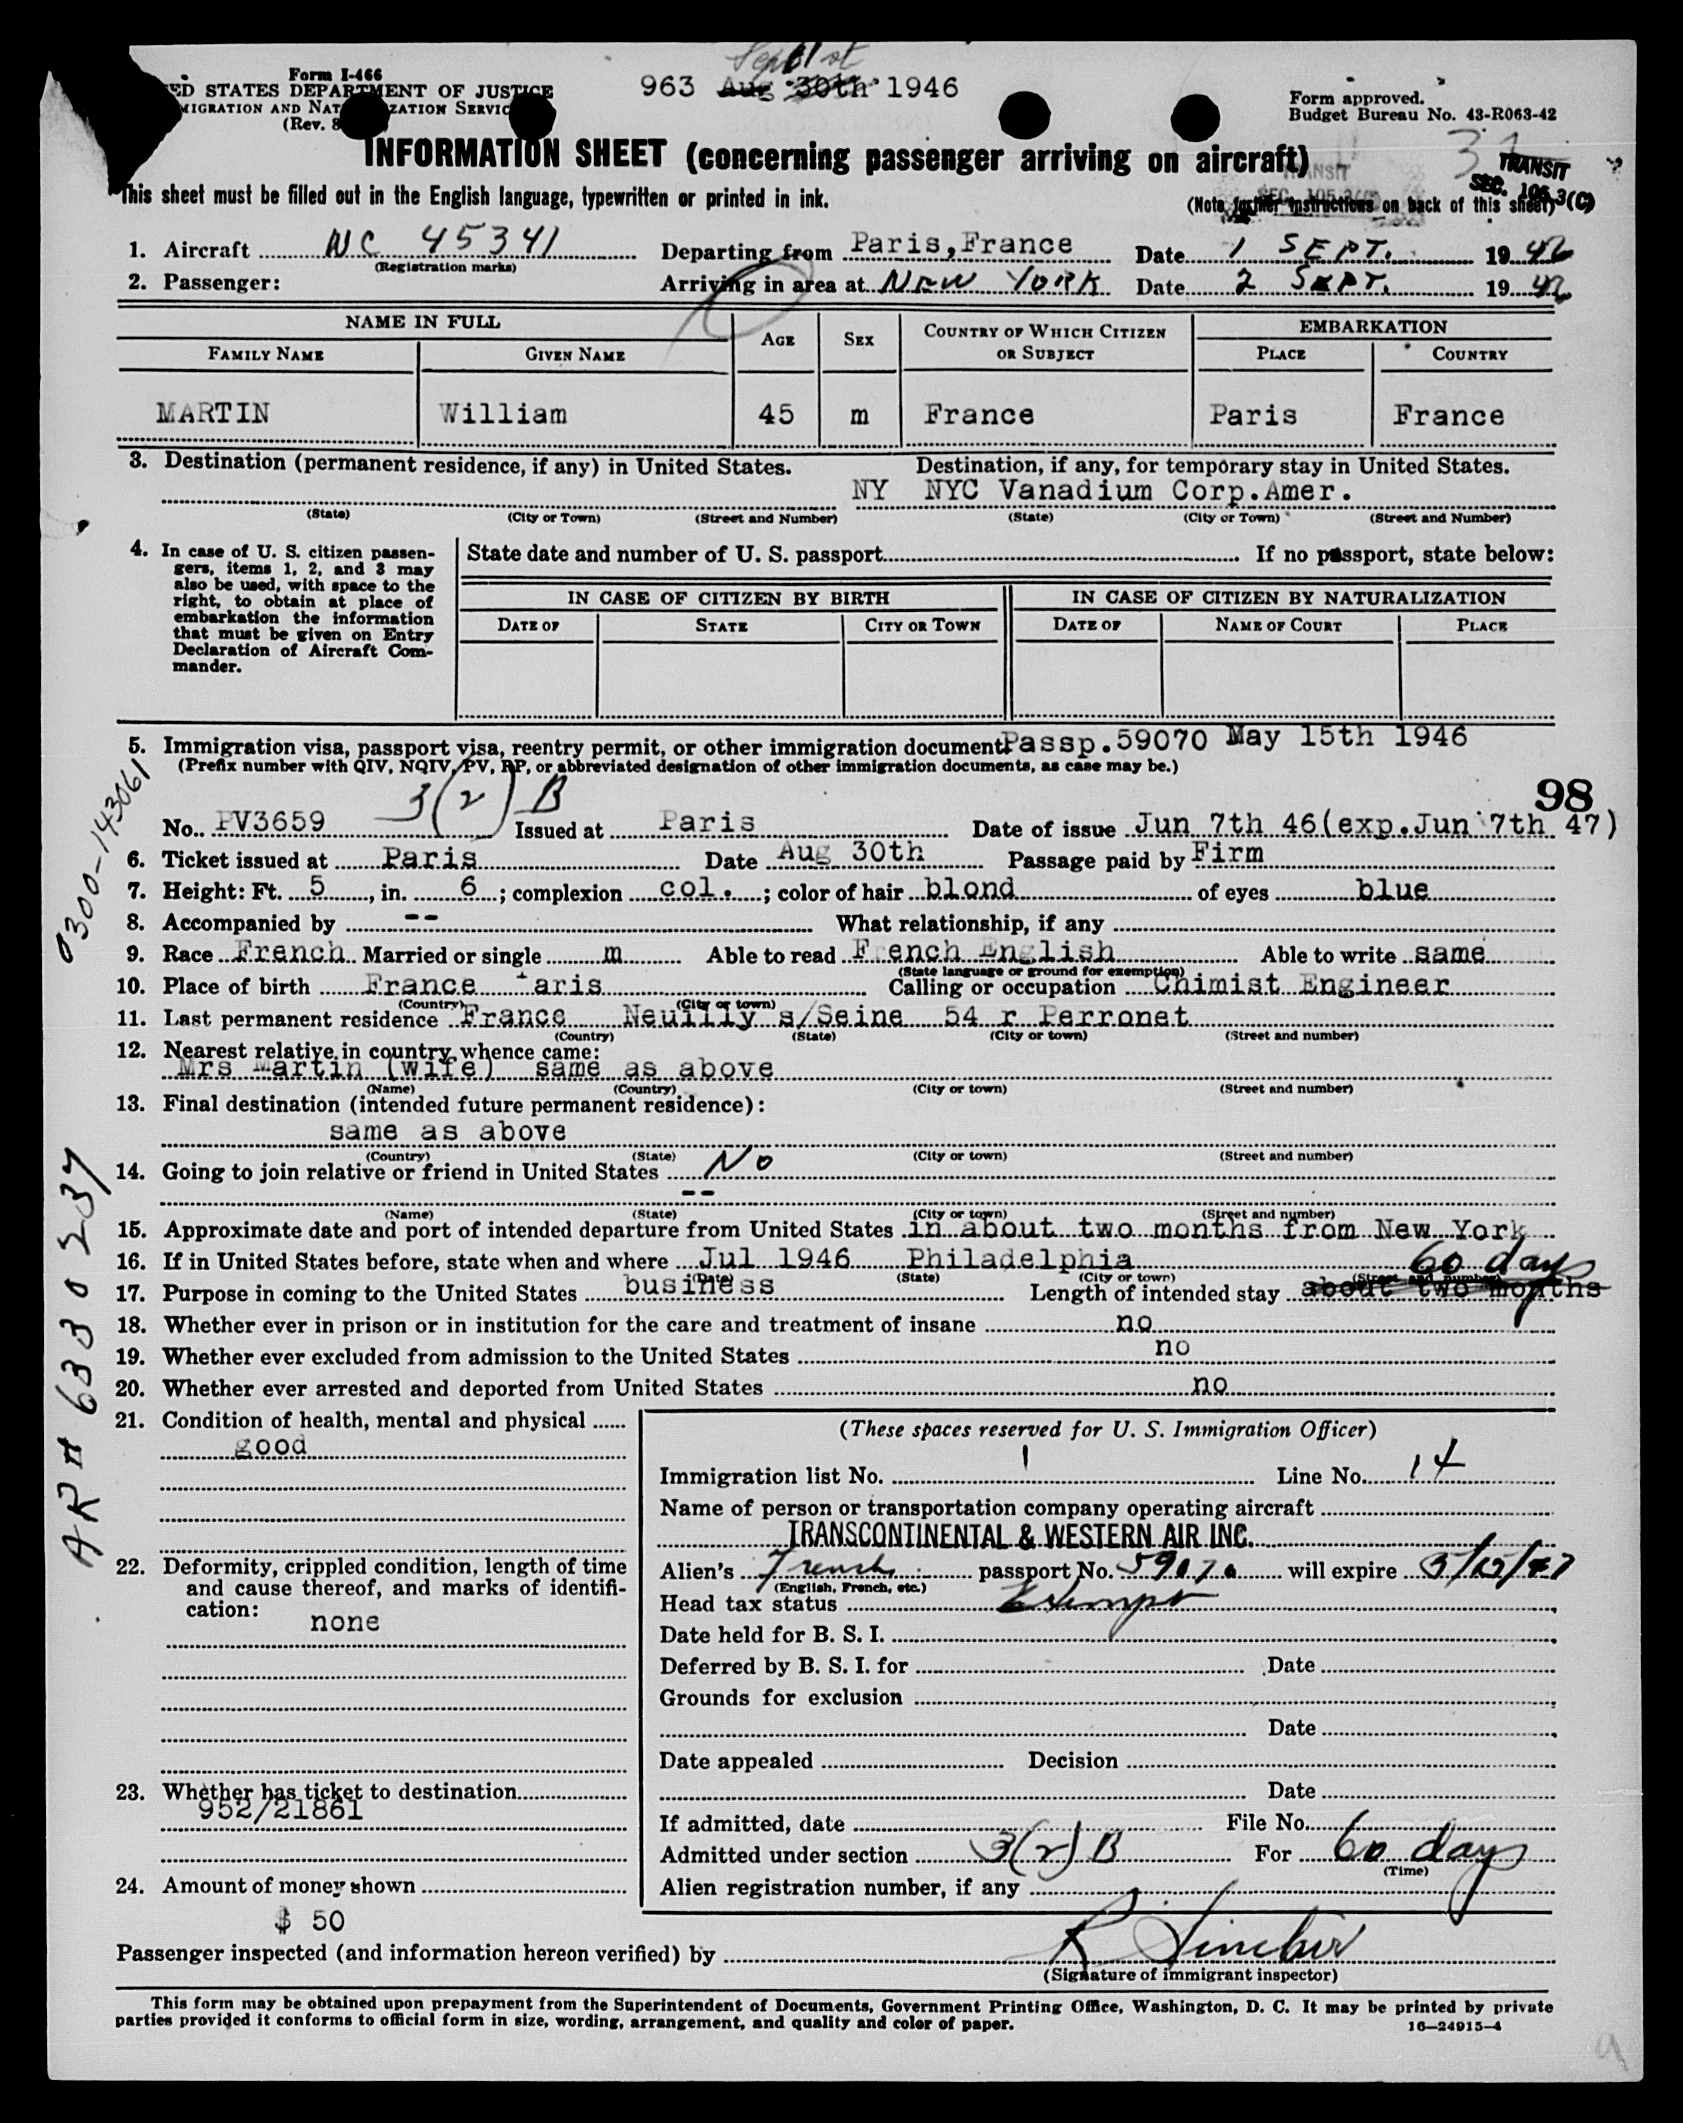 Form I-466
ED STATES DEPARTMENT OF JUSTICE
MIGRATION AND NAT ZATION SERVIC
(Rev. 8
963 Aug 30th 1946
Sept 1st
Form approved.
Budget Bureau No. 43-R063-42
INFORMATION SHEET (concerning passenger arriving on aircraft)
TRANSIT
SEC. 105.3(C)
This sheet must be filled out in the English language, typewritten or printed in ink.
(Note further instructions on back of this sheet)
1. Aircraft NC 45341 Departing from Paris,France Date 1 SEPT. 1946
(Registration marks)
2. Passenger: Arriving in area at NEW YORK Date 2 SEPT. 1946
NAME IN FULL AGE SEX COUNTRY OF WHICH CITIZEN OR SUBJECT EMBARKATION
FAMILY NAME GIVEN NAME PLACE COUNTRY
MARTIN William 45 m France Paris France
3. Destination (permanent residence, if any) in United States. Destination, if any, for temporary stay in United States.
NY NYC Vanadium Corp.Amer.
(State) (City or Town) (Street and Number) (State) (City or Town) (Street and Number)
4. In case of U. S. citizen passengers, items 1, 2, and 3 may
also be used, with space to the
right, to obtain at place of
embarkation the information
that must be given on Entry
Declaration of Aircraft Commander.
State date and number of U. S. passport If no passport, state below:
IN CASE OF CITIZEN BY BIRTH IN CASE OF CITIZEN BY NATURALIZATION
DATE OF STATE CITY OR TOWN DATE OF NAME OF COURT PLACE
5. Immigration visa, passport visa, reentry permit, or other immigration document Passp.59070 May 15th 1946
(Prefix number with QIV, NQIV, PV, RP, or abbreviated designation of other immigration documents, as case may be.)
3(2)B
98
No. PV3659 Issued at Paris Date of issue Jun 7th 46(exp.Jun 7th 47)
0300-143061
6. Ticket issued at Paris Date Aug 30th Passage paid by Firm
7. Height: Ft. 5, in. 6; complexion col.; color of hair blond of eyes blue
8. Accompanied by -- What relationship, if any
9. Race French Married or single m Able to read French English Able to write same
(State language or ground for exemption)
10. Place of birth France Paris Calling or occupation Chimist Engineer
(Country) (City or town)
11. Last permanent residence France Neuilly s/Seine 54 r Perronet
(Country) (State) (City or town) (Street and number)
12. Nearest relative in country whence came:
Mrs Martin (wife) same as above
(Name) (Country) (City or town) (Street and number)
13. Final destination (intended future permanent residence):
same as above
(Country) (State) (City or town) (Street and number)
14. Going to join relative or friend in United States No
--
(Name) (State) (City or town) (Street and number)
15. Approximate date and port of intended departure from United States in about two months from New York
16. If in United States before, state when and where Jul 1946 Philadelphia
(Date) (State) (City or town) (Street and number)
60 days
17. Purpose in coming to the United States business Length of intended stay about two months
18. Whether ever in prison or in institution for the care and treatment of insane no
19. Whether ever excluded from admission to the United States no
20. Whether ever arrested and deported from United States no
AR# 6330237
21. Condition of health, mental and physical
good
22. Deformity, crippled condition, length of time
and cause thereof, and marks of identification:
none
23. Whether has ticket to destination
952/21861
24. Amount of money shown
$ 50
(These spaces reserved for U. S. Immigration Officer)
Immigration list No. 1 Line No. 14
Name of person or transportation company operating aircraft
TRANSCONTINENTAL & WESTERN AIR INC.
Alien's French passport No. 59070 will expire 5/15/47
(English, French, etc.)
Head tax status Exempt
Date held for B. S. I.
Deferred by B. S. I. for Date
Grounds for exclusion
Date
Date appealed Decision
Date
If admitted, date File No.
Admitted under section 3(2)B For 60 days
(Time)
Alien registration number, if any
Passenger inspected (and information hereon verified) by R Sinclair
(Signature of immigrant inspector)
This form may be obtained upon prepayment from the Superintendent of Documents, Government Printing Office, Washington, D. C. It may be printed by private
parties provided it conforms to official form in size, wording, arrangement, and quality and color of paper.
16—24915-4